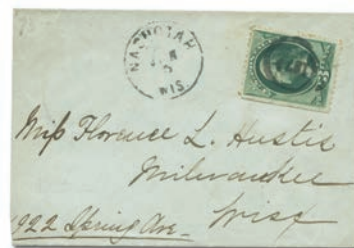 NASHOTAH
WIS.
Miss Florence L. Hustis
Milwaukee
Wisc
1922 Spring Ave.